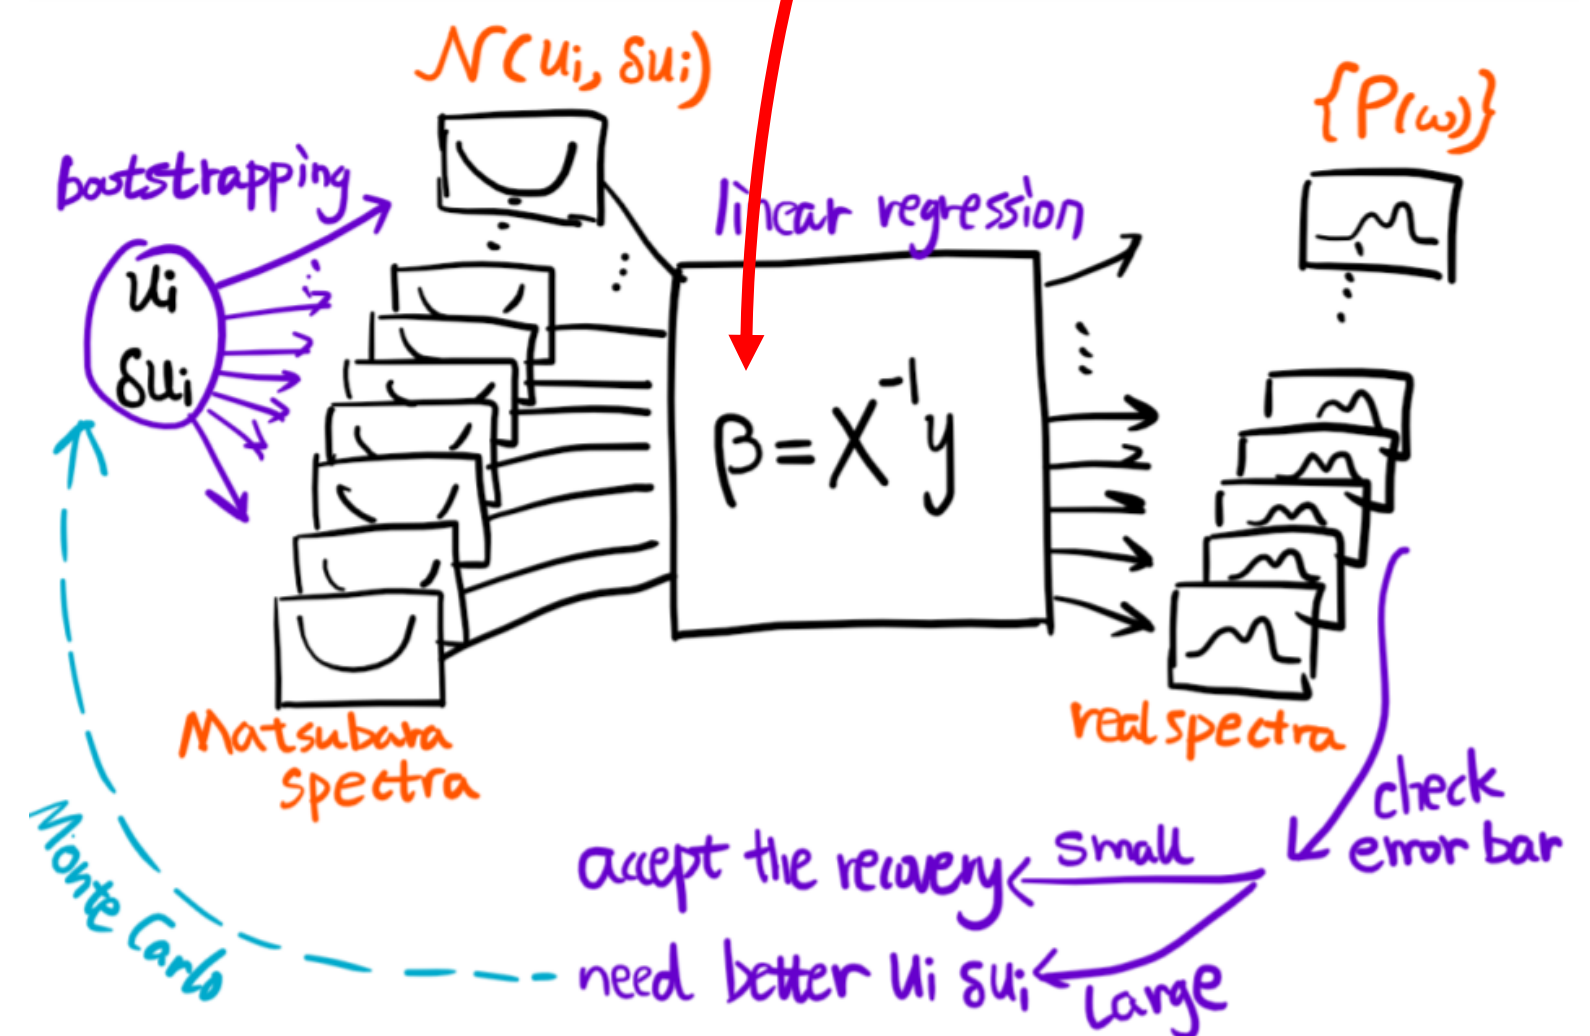 N(ui, δui)
{P(ω)}
bootstrapping
linear regression
ui
δui
β = X⁻¹y
Matsubara
spectra
real spectra
check
error bar
small
accept the recovery
Monte Carlo
need better ui δui
Large